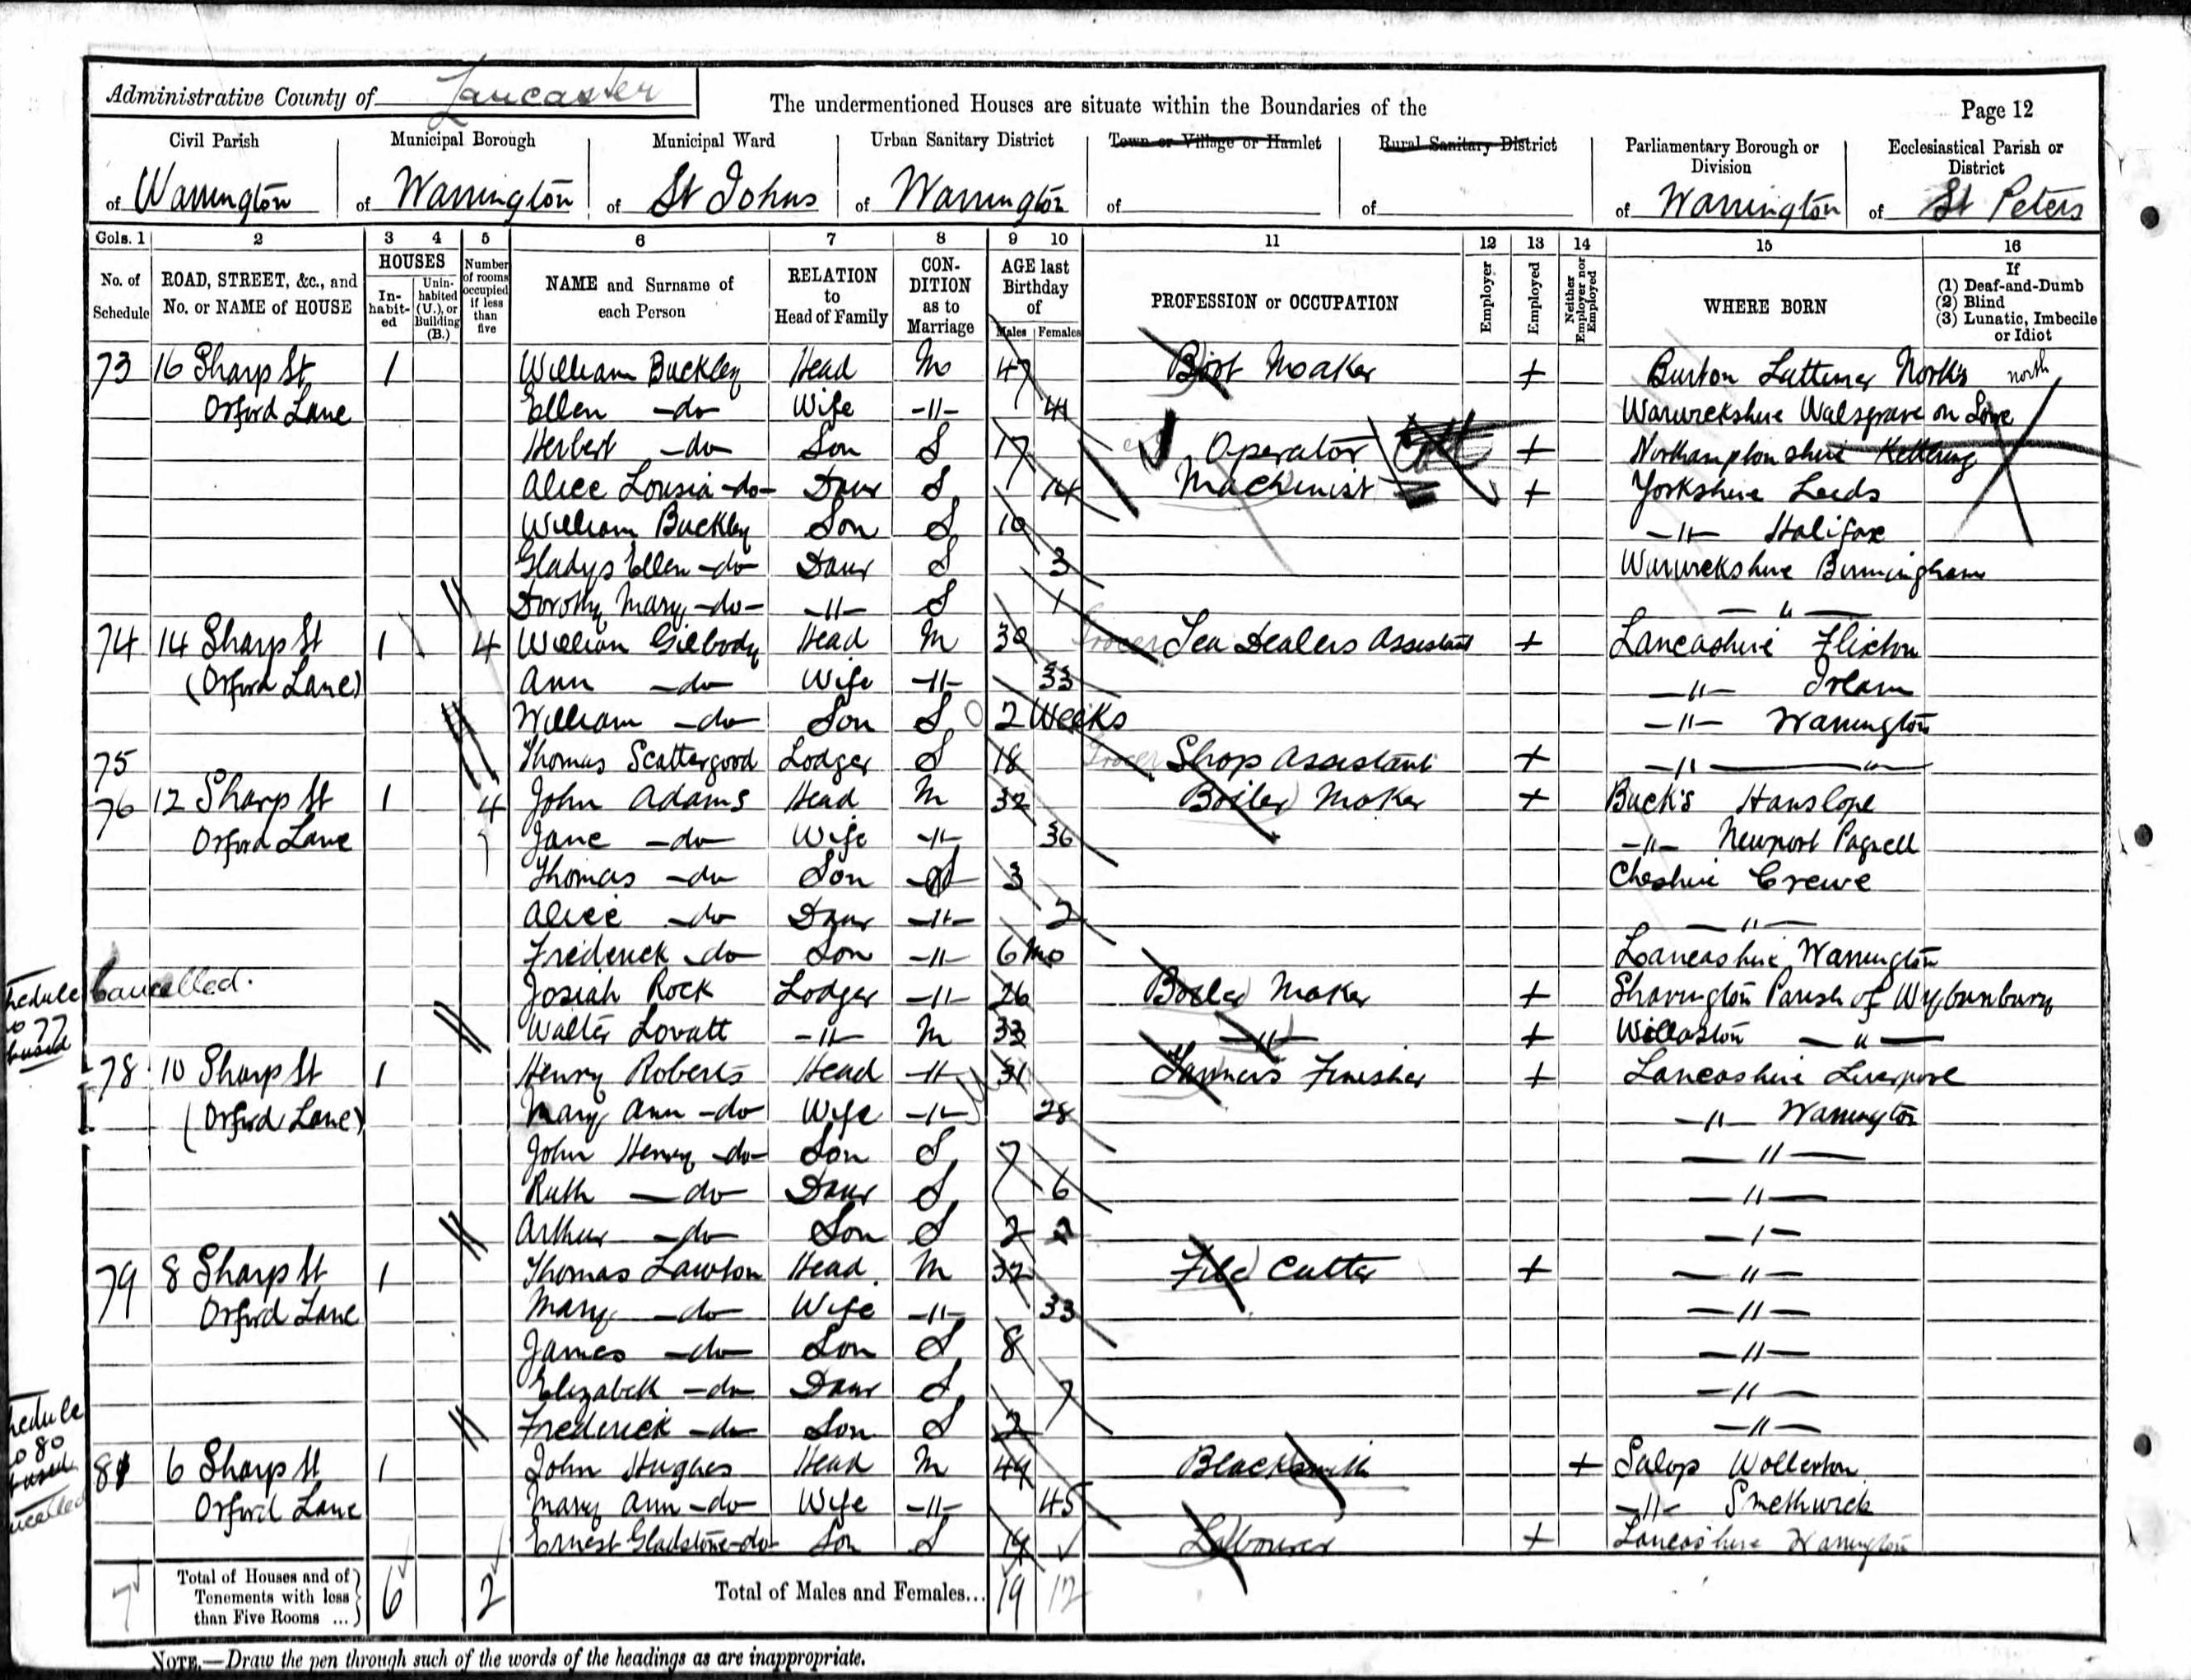 Administrative County of Lancaster
The undermentioned Houses are situate within the Boundaries of the
Page 12
Civil Parish Municipal Borough Municipal Ward Urban Sanitary District Town or Village or Hamlet Rural Sanitary District Parliamentary Borough or Division Ecclesiastical Parish or District
of Warrington of Warrington of St Johns of Warrington of of of Warrington of St Peters
Cols. 1 2 3 4 5 6 7 8 9 10 11 12 13 14 15 16
No. of Schedule ROAD, STREET, &c., and No. or NAME of HOUSE HOUSES In-habit-ed Unin-habited (U.), or Building (B.) Number of rooms occupied if less than five NAME and Surname of each Person RELATION to Head of Family CON-DITION as to Marriage AGE last Birthday of Males Females PROFESSION or OCCUPATION Employer Employed Neither Employer nor Employed WHERE BORN If (1) Deaf-and-Dumb (2) Blind (3) Lunatic, Imbecile or Idiot
73 16 Sharp St 1 William Buckley Head M 47 Boot Maker + Burton Lattimer North's north
Orford Lane Ellen -do- Wife -11- 41 Warwickshire Walsgrave on Sowe
Herbert -do- Son S 17 Operator + Northamptonshire Kettering
Alice Lousia -do- Daur S 14 Machinist + Yorkshire Leeds
William Buckley Son S 10 -11- Halifax
Gladys Ellen -do- Daur S 3 Warwickshire Birmingham
Dorothy Mary -do- -11- S 1 - " -
74 14 Sharp St 1 4 William Gilbody Head M 30 Grocer Tea Dealers Assistant + Lancashire Flixton
(Orford Lane) Ann -do- Wife -11- 33 -11- Irlam
William -do- Son S 2 Weeks -11- Warrington
75 Thomas Scattergood Lodger S 18 Grocer Shop Assistant + -11- "
76 12 Sharp St 1 4 John Adams Head M 32 Boiler Maker + Buck's Hanslope
Orford Lane Jane -do- Wife -11- 36 -11- Newport Pagnell
Thomas -do- Son S 3 Cheshire Crewe
Alice -do- Daur -11- 2 - 11 -
Frederick -do- Son -11- 6 Mo Lancashire Warrington
Cancelled. Josiah Rock Lodger -11- 26 Boiler Maker + Shavington Parish of Wybunbury
Walter Lovatt -11- M 33 -11- + Willaston - " -
78 10 Sharp St 1 Henry Roberts Head -11- 31 Tanners Finisher + Lancashire Liverpool
(Orford Lane) Mary Ann -do- Wife -11- 28 -11- Warrington
John Henry -do- Son S 7 - 11 -
Ruth -do- Daur S 6 - 11 -
Arthur -do- Son S 2 - 1 -
79 8 Sharp St 1 Thomas Lawton Head M 32 File Cutter + - 11 -
Orford Lane Mary -do- Wife -11- 33 - 11 -
James -do- Son S 8 - 11 -
Elizabeth -do- Daur S 7 - 11 -
Frederick -do- Son S 2 - 11 -
81 6 Sharp St 1 John Hughes Head M 49 Blacksmith + Salop Wollerton
Orford Lane Mary Ann -do- Wife -11- 45 -11- Smethwick
Ernest Gladstone -do- Son S 19 Labourer + Lancashire Warrington
7 Total of Houses and of Tenements with less than Five Rooms ... 6 2 Total of Males and Females... 19 12
NOTE.—Draw the pen through such of the words of the headings as are inappropriate.